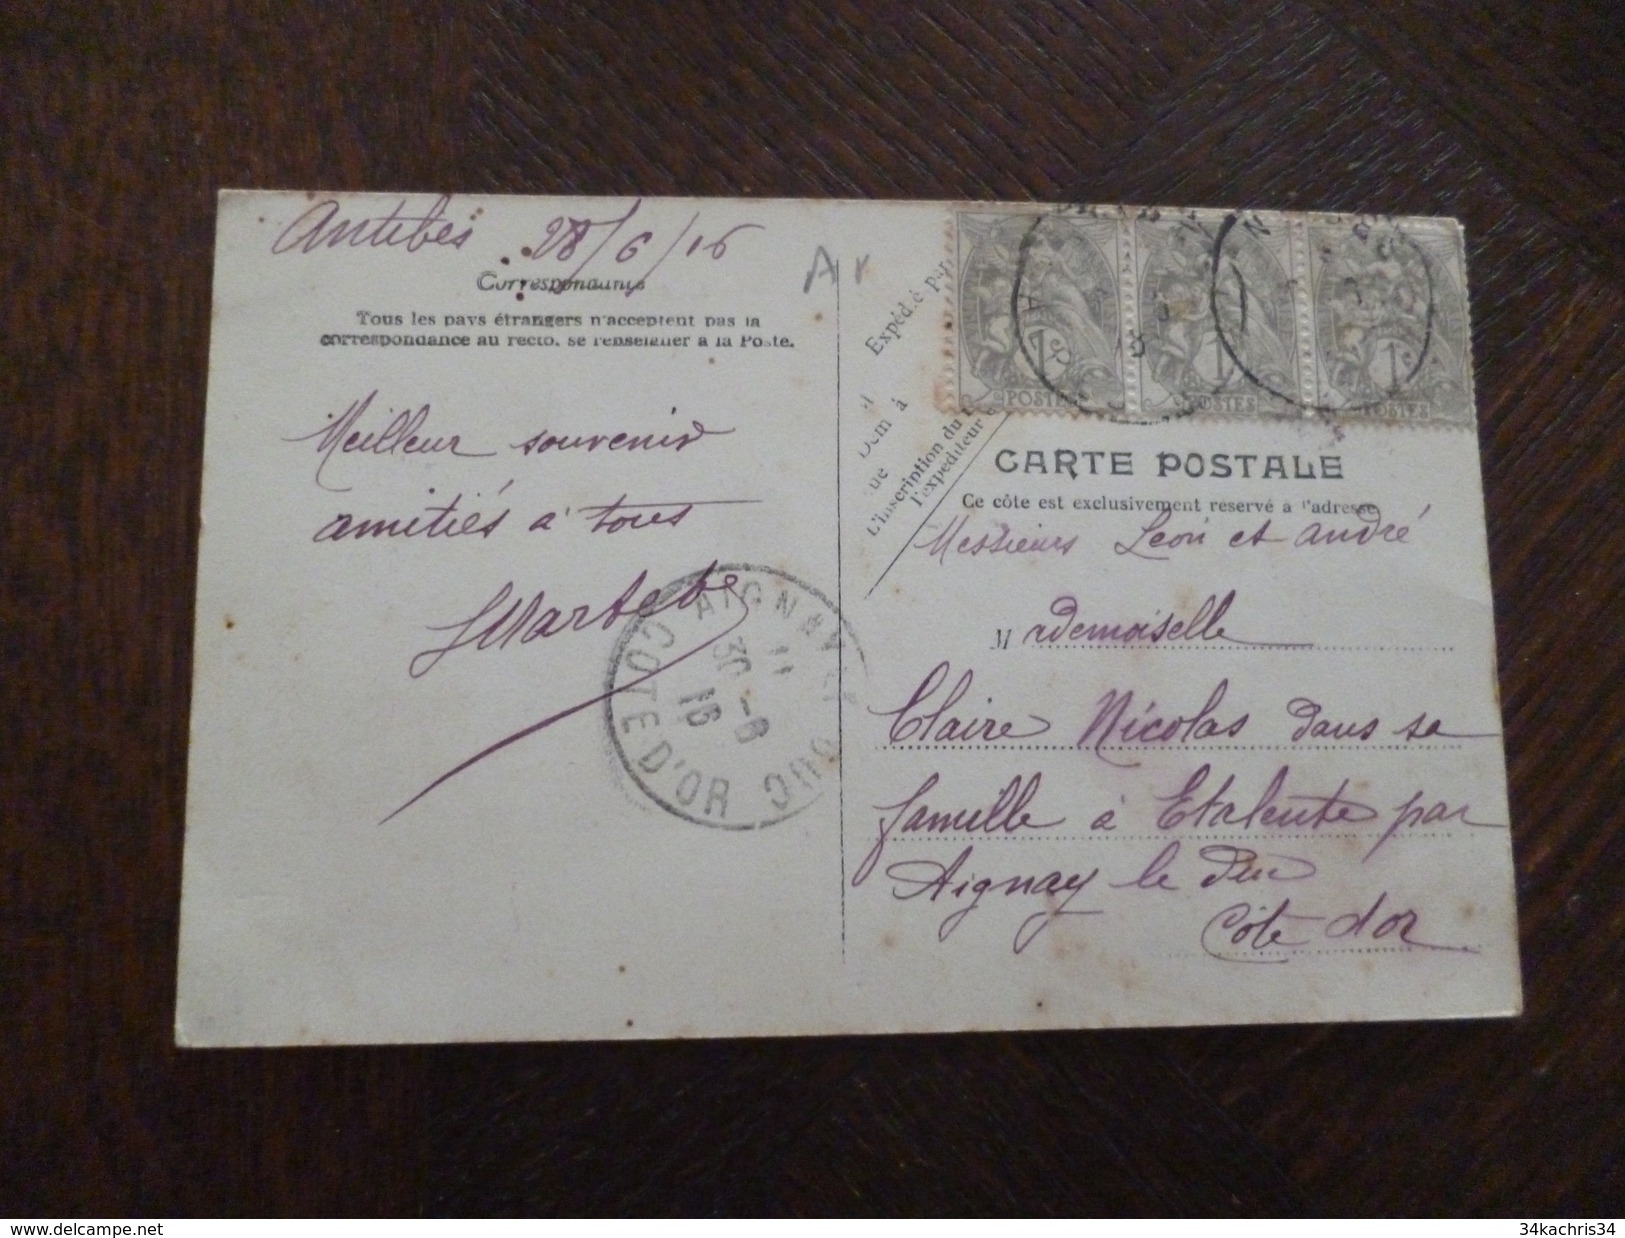 Antibes 28/6/16
Correspondance
Tous les pays étrangers n'acceptent pas la
correspondance au recto, se renseigner à la Poste.
Meilleur souvenir
amitiés à tous
AIGNAY-LE-DUC
11
30-6
16
COTE D'OR
Expédié par
L'inscription du
l'expéditeur
1c 1c 1c
POSTES POSTES POSTES
CARTE POSTALE
Ce côte est exclusivement reservé à l'adresse
Messieurs Leon et andré
Mademoiselle
Claire Nicolas dans sa
famille à Etalente par
Aignay le Duc
Côte d'or
delcampe.net
34kachris34